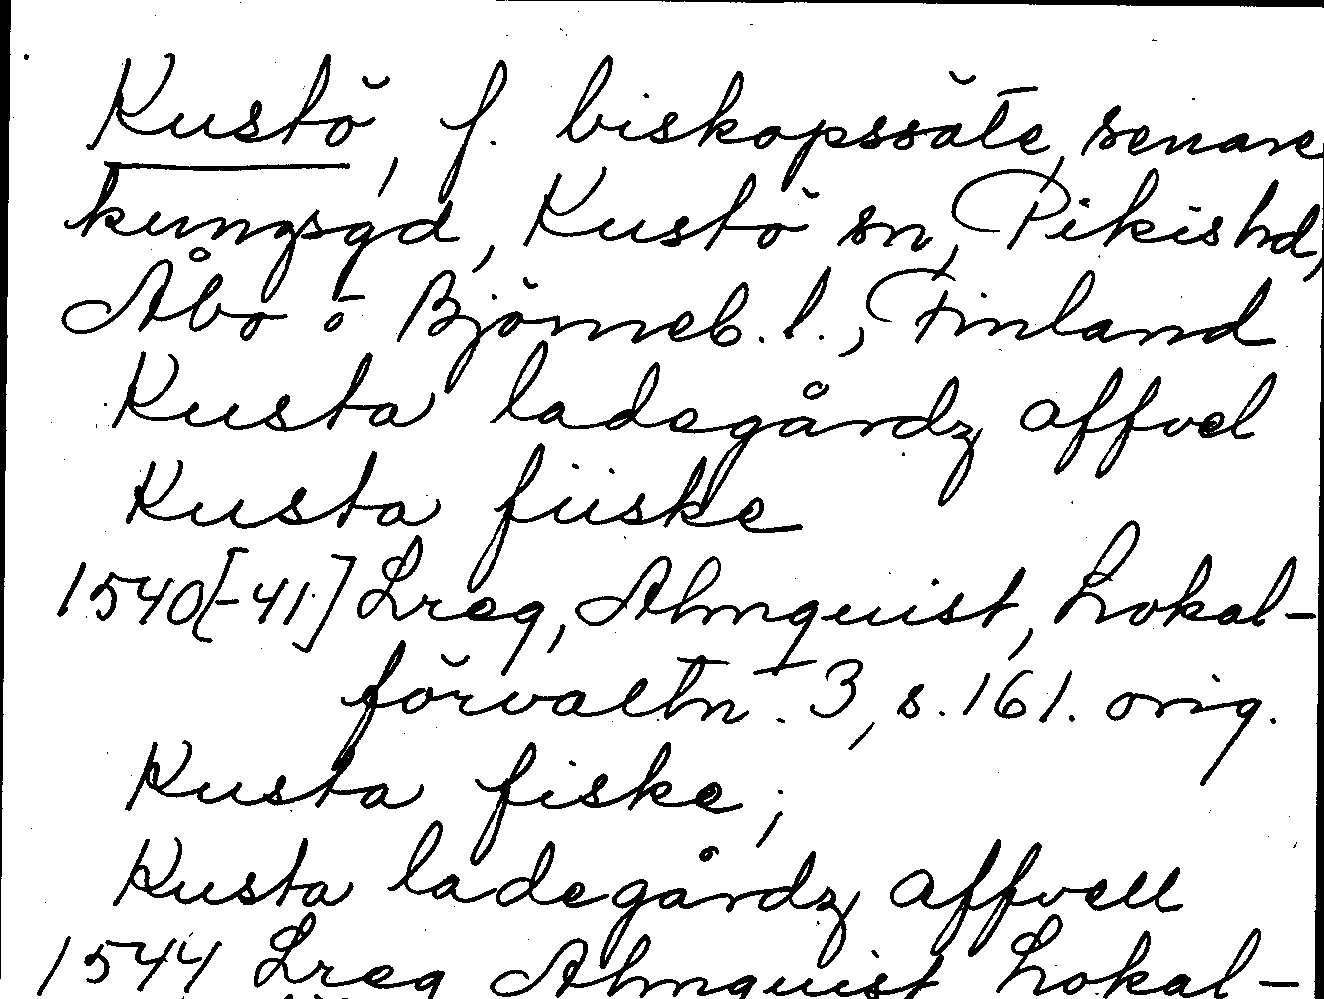 Kustö, f. biskopssäte, senare
kungsgd, Kustö sn, Pikis hd,
Åbo o Björneb. l., Finland
Kusta ladegårdz affvel
Kusta fiiske
1540[-41] Lreg, Almquist, Lokal-
förvaltn. 3, s. 161. orig.
Kusta fiske;
Kusta ladegårdz affvell
1544 Lreg Almquist Lokal-